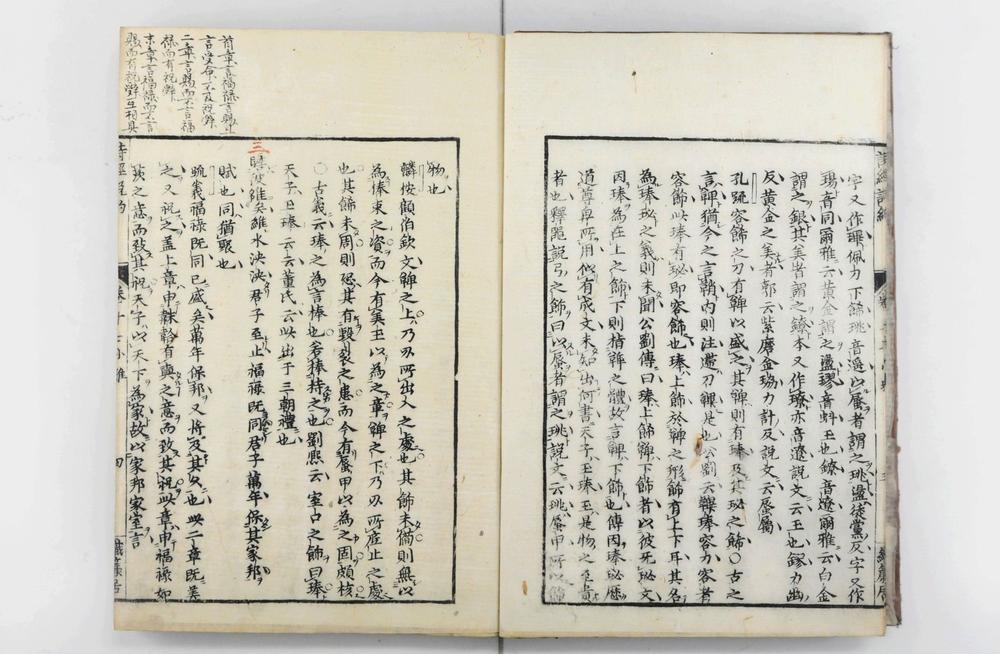 字又作琕佩刀下飾珧音遥以蜃者謂之珧盪徒黨反字又作
瑒音同爾雅云黄金謂之盪璆音虯玉也鐐音遼爾雅云白金
謂之銀其美者謂之鐐本又作璙亦音遼說文云玉也鏐力幽
反黄金之美者郭云紫磨金珕力計反說文云蜃屬
孔疏容飾之刀有鞞以盛之其鞞則有琫及其珌之飾〇古之
言鞞猶今之言鞘内則注遰刀鞞是也公劉云鞞琫容刀容者
容飾此琫有珌即容飾也琫上飾於鞞之形飾有上下耳其名
為琫珌之義則未聞公劉傳曰琫上飾鞞下飾者以彼无珌文
因琫為在上之飾下則指鞞之體故言鞞下飾也傳因琫珌歴
道尊卑所用似有成文未知出何書天子玉琫玉是物之至貴
者也釋器說弓之飾曰以蜃者謂之珧說文云珧蜃甲所以飾
物也
麟按顧伯欽文鞞之上乃刃所出入之處也其飾未備則無以
為捧束之資而今有美玉以為之章鞞之下乃刃所底止之處
也其飾未周則恐其有毀裂之患而今有蜃甲以為之固頗核
〇古義云琫之為言捧也若捧持之也劉熙云室口之飾曰琫
天子玉琫云云董氏云此出于三朝禮也
三瞻彼洛矣維水泱泱君子至止福祿既同君子萬年保其家邦
賦也同猶聚也
疏義福祿既同已盛矣萬年保邦又將及其久也此二章既美
之又祝之蓋上章申韎韐有奭之意而致其祝此章申福祿如
茨之意而致其祝天子以天下為家故以家邦家室言
首章言福祿言賜止
言受命不及祝辭
二章言賜而不言福
祿而有祝辭
末章言福祿而不言
賜而有祝辭互相具